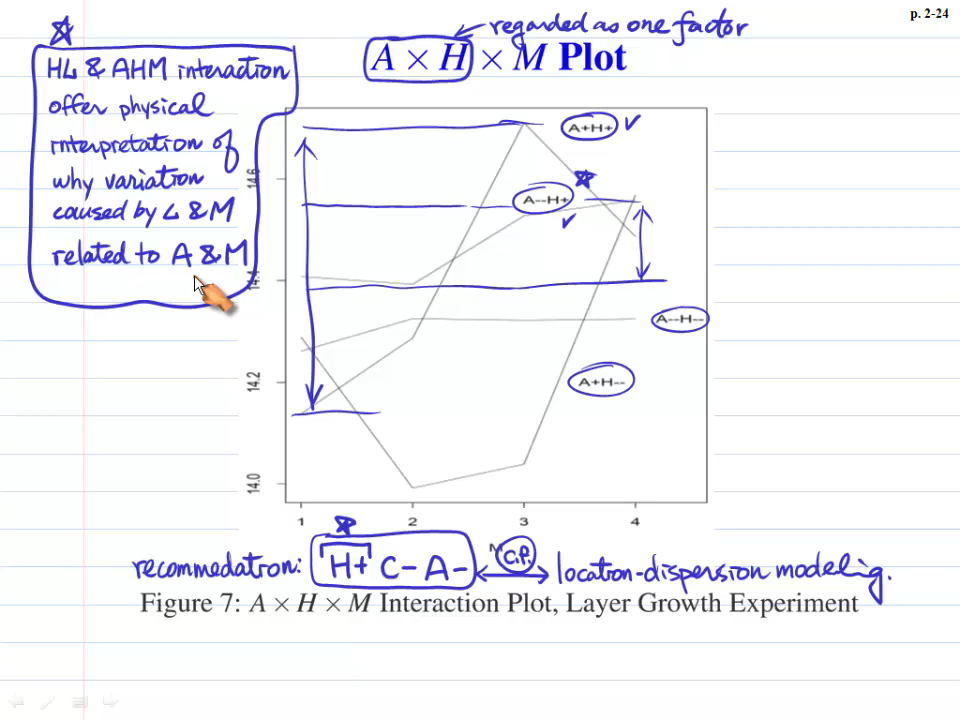 p. 2-24
regarded as one factor
A × H × M Plot
HL & AHM interaction
offer physical
interpretation of
why variation
caused by L & M
related to A & M
A+H+
A--H+
A--H--
A+H--
14.6
14.4
14.2
14.0
1 2 3 4
M
recommedation: H+ C- A- C.P. location-dispersion modeling.
Figure 7: A × H × M Interaction Plot, Layer Growth Experiment